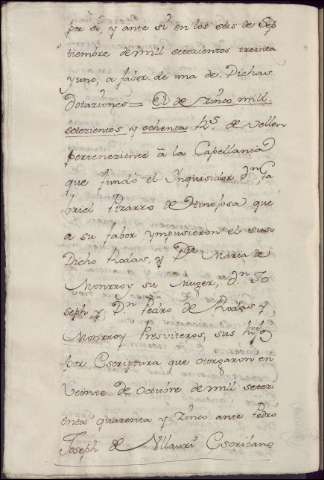 por el, y ante si en los seis de Sep
tiembre de mil setecientos treinta
y uno, a fabor de una de Dichas
Dotaziones = El de Zinco mil
setezientos y ochenta Rs. de Vellon
perteneziente â la Capellania
que fundó el Inquisidor Dn. Ga
briel Pizarro de Henojosa que
a su fabor ympusieron el suso
Dicho Rodas, y Da. Maria de
Monrroy su Muger, Dn. Jo
seph y Dn. Pedro de Rodas y
Monrroy Presviteros, sus hijos
por Escriptura que otorgaron en
Veinte de Octubre de mil setez
ientos quarenta y Zinco ante Pedro
Joseph de Villauri Escrivano